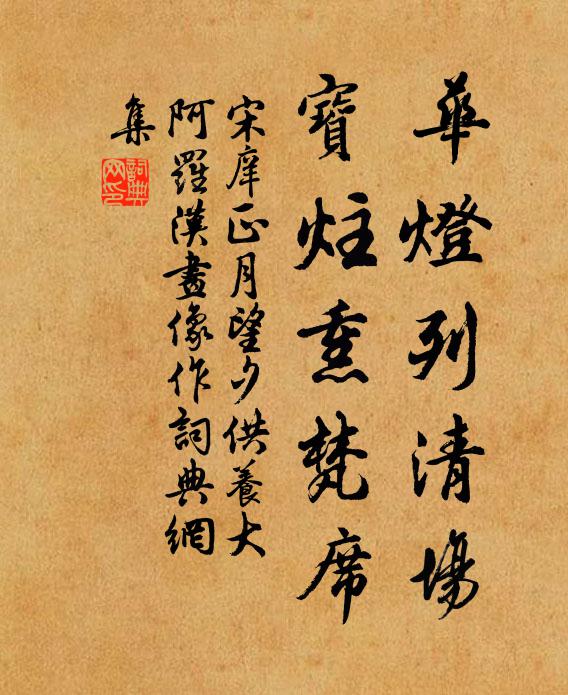 華燈列清場
寶炷熏梵席
宋庠正月望夕供養大
阿羅漢畫像作詞典網
集
詞典
网印